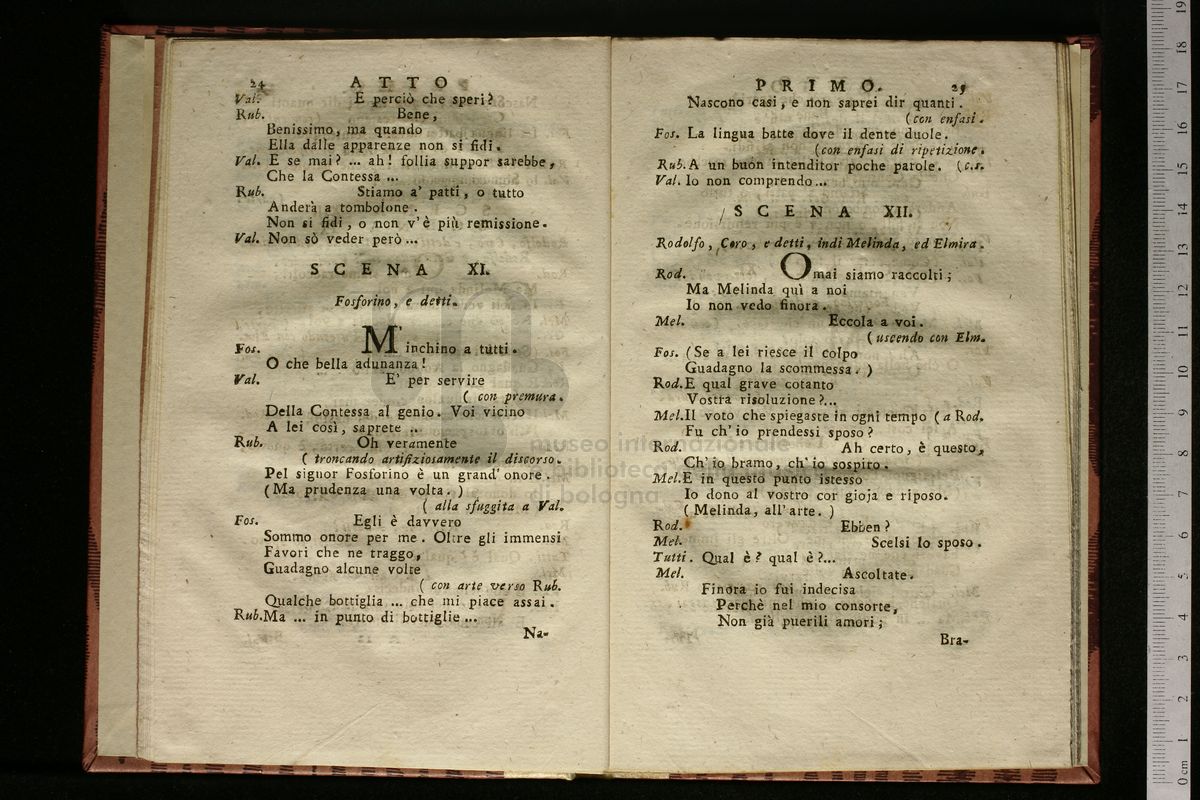 24 ATTO
Val. E perciò che speri?
Rub. Bene,
Benissimo, ma quando
Ella dalle apparenze non si fidi.
Val. E se mai? ... ah! follia suppor sarebbe,
Che la Contessa ...
Rub. Stiamo a' patti, o tutto
Anderà a tombolone.
Non si fidi, o non v'è più remissione.
Val. Non sò veder però ...
SCENA XI.
Fosforino, e detti.
Fos. M'inchino a tutti.
O che bella adunanza!
Val. E' per servire
( con premura.
Della Contessa al genio. Voi vicino
A lei così, saprete ..
Rub. Oh veramente
( troncando artifiziosamente il discorso.
Pel signor Fosforino è un grand' onore.
(Ma prudenza una volta. )
( alla sfuggita a Val.
Fos. Egli è davvero
Sommo onore per me. Oltre gli immensi
Favori che ne traggo,
Guadagno alcune volte
( con arte verso Rub.
Qualche bottiglia ... che mi piace assai.
Rub. Ma ... in punto di bottiglie ...
Na-
PRIMO. 25
Nascono casi, e non saprei dir quanti.
(con enfasi.
Fos. La lingua batte dove il dente duole.
(con enfasi di ripetizione.
Rub. A un buon intenditor poche parole. (c.s.
Val. Io non comprendo ...
SCENA XII.
Rodolfo, Coro, e detti, indi Melinda, ed Elmira.
Rod. Omai siamo raccolti;
Ma Melinda quì a noi
Io non vedo finora.
Mel. Eccola a voi.
( uscendo con Elm.
Fos. (Se a lei riesce il colpo
Guadagno la scommessa. )
Rod. E qual grave cotanto
Vostra risoluzione?...
Mel. Il voto che spiegaste in ogni tempo ( a Rod.
Fu ch' io prendessi sposo?
Rod. Ah certo, è questo,
Ch' io bramo, ch' io sospiro.
Mel. E in questo punto istesso
Io dono al vostro cor gioja e riposo.
( Melinda, all' arte. )
Rod. Ebben?
Mel. Scelsi lo sposo.
Tutti. Qual è? qual è?...
Mel. Ascoltate.
Finora io fui indecisa
Perchè nel mio consorte,
Non già puerili amori;
Bra-
museo internazionale
e biblioteca della musica
di bologna
0 cm 1 2 3 4 5 6 7 8 9 10 11 12 13 14 15 16 17 18 19